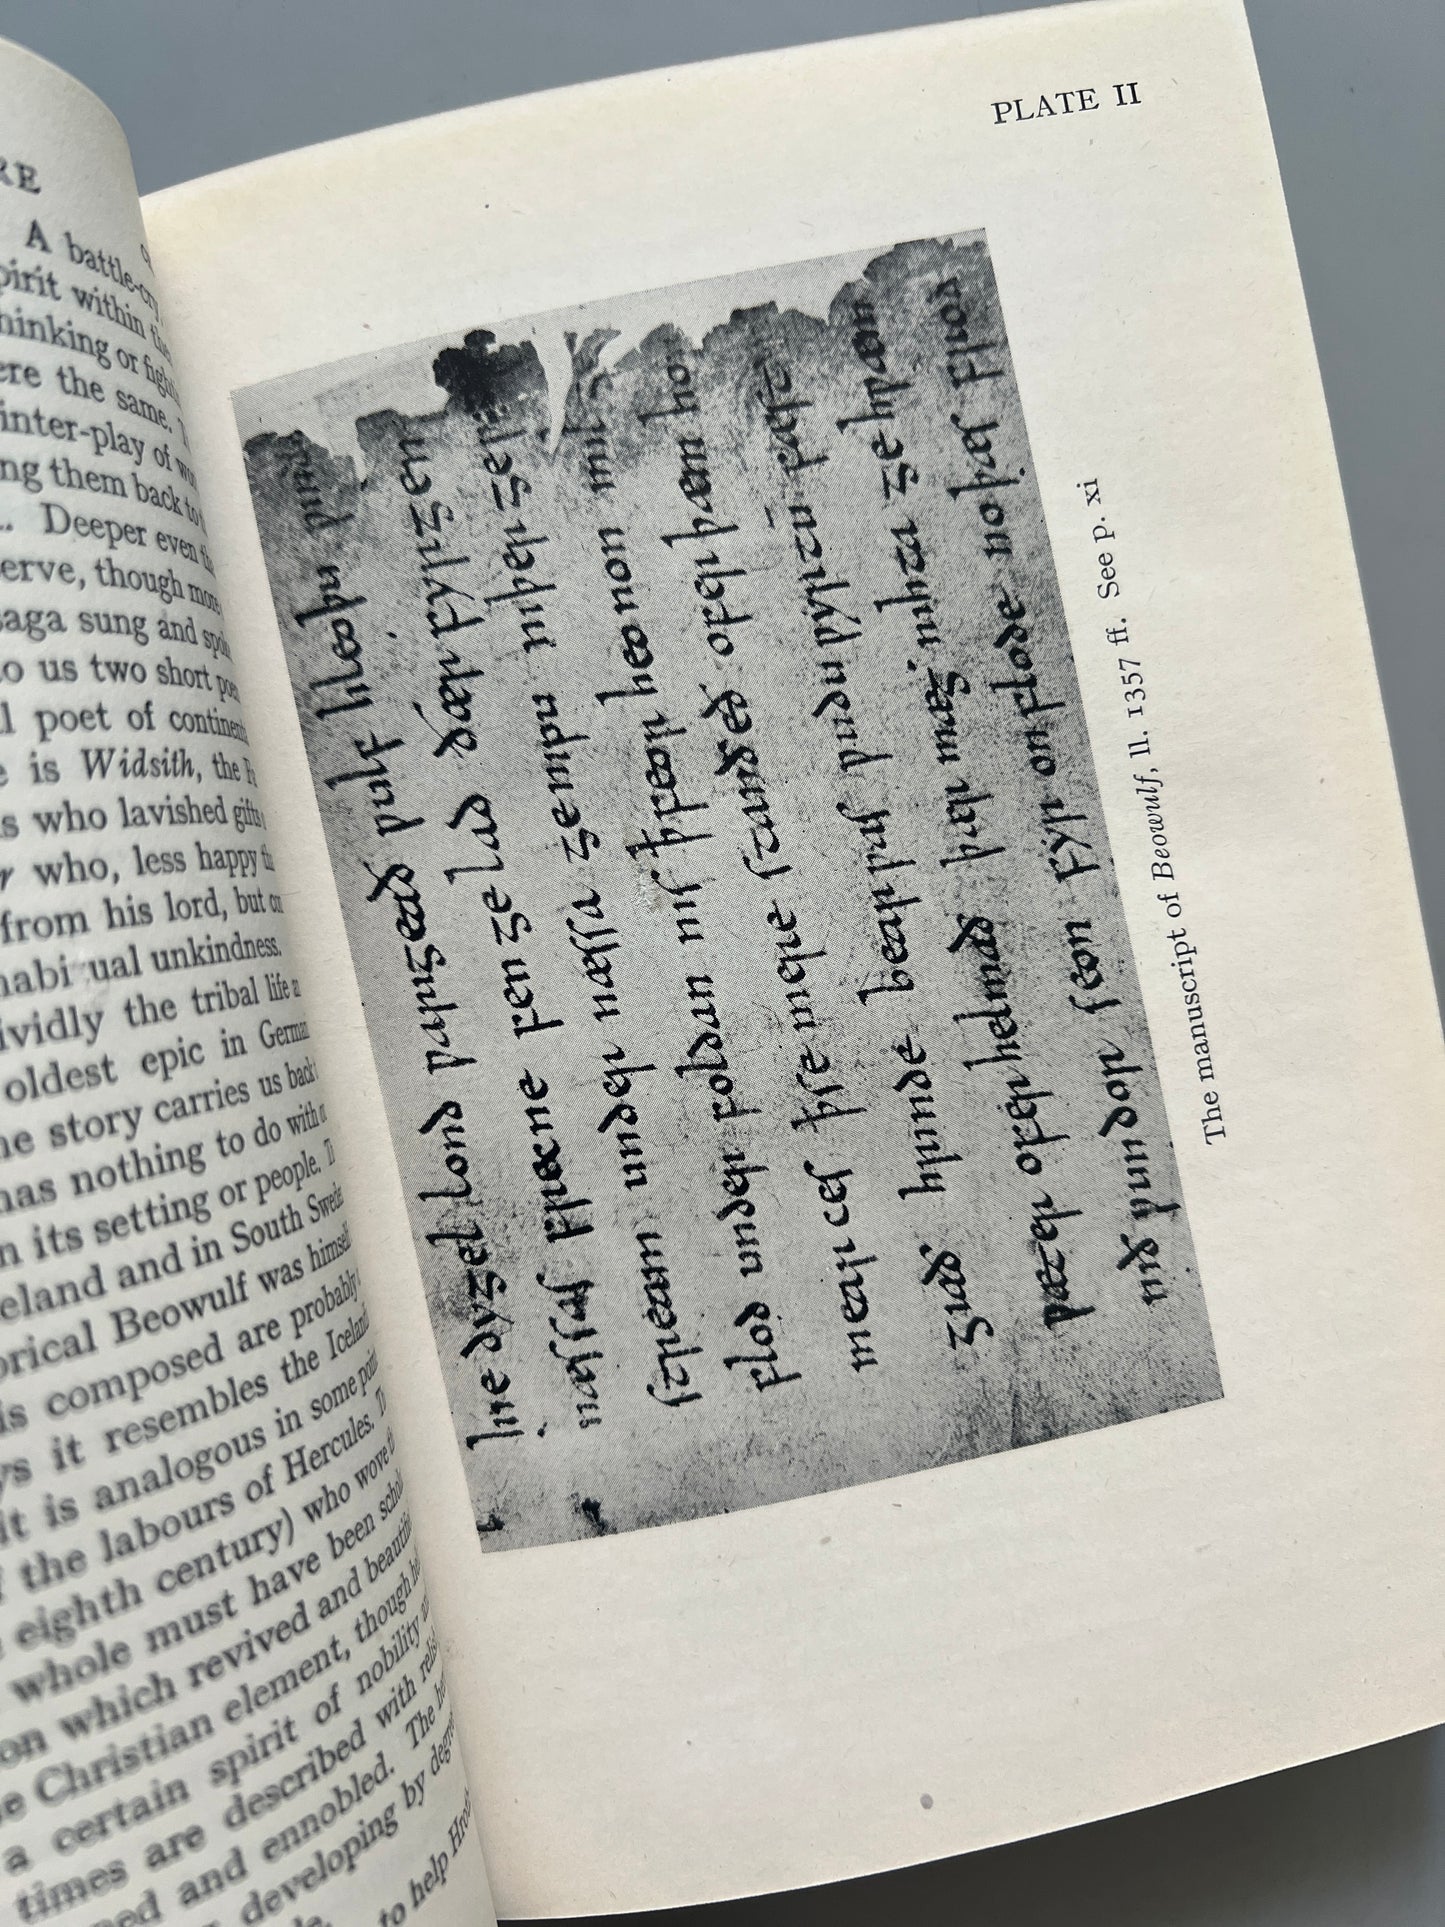 RE
A battle-cry
spirit within the
thinking or fight
ere the same.
inter-play of
ng them back to
.. Deeper even
erve, though more
saga sung and
to us two short
l poet of continen
e is Widsith, the
s who lavished gifts
r who, less happy
from his lord, but
habitual unkindness.
ividly the tribal life
oldest epic in German
he story carries us back
has nothing to do with
n its setting or people.
eland and in South Swede
orical Beowulf was himself
is composed are probably
ys it resembles the Iceland
it is analogous in some point
f the labours of Hercules.
eighth century) who wove
whole must have been
on which revived and
e Christian element, though
a certain spirit of nobility
times are described with
ed and ennobled. The
developing by
to help
PLATE II
hie dygel lond ƿarigeað ƿulf hleoþu ƿindi
næssas frecne fen gelad ðær fyrgen
stream under næssa genipu niþer geƿ
flod under foldan nis þ feor heonon mil ge
mearces þ se mere standeð ofer þæm hon
giað hrinde bearƿas ƿudu ƿyrtū fæst
ƿæter oferhelmað þær mæg nihta gehƿæm
nið ƿundor seon fyr on flode no þæs frod
The manuscript of Beowulf, ll. 1357 ff. See p. xi